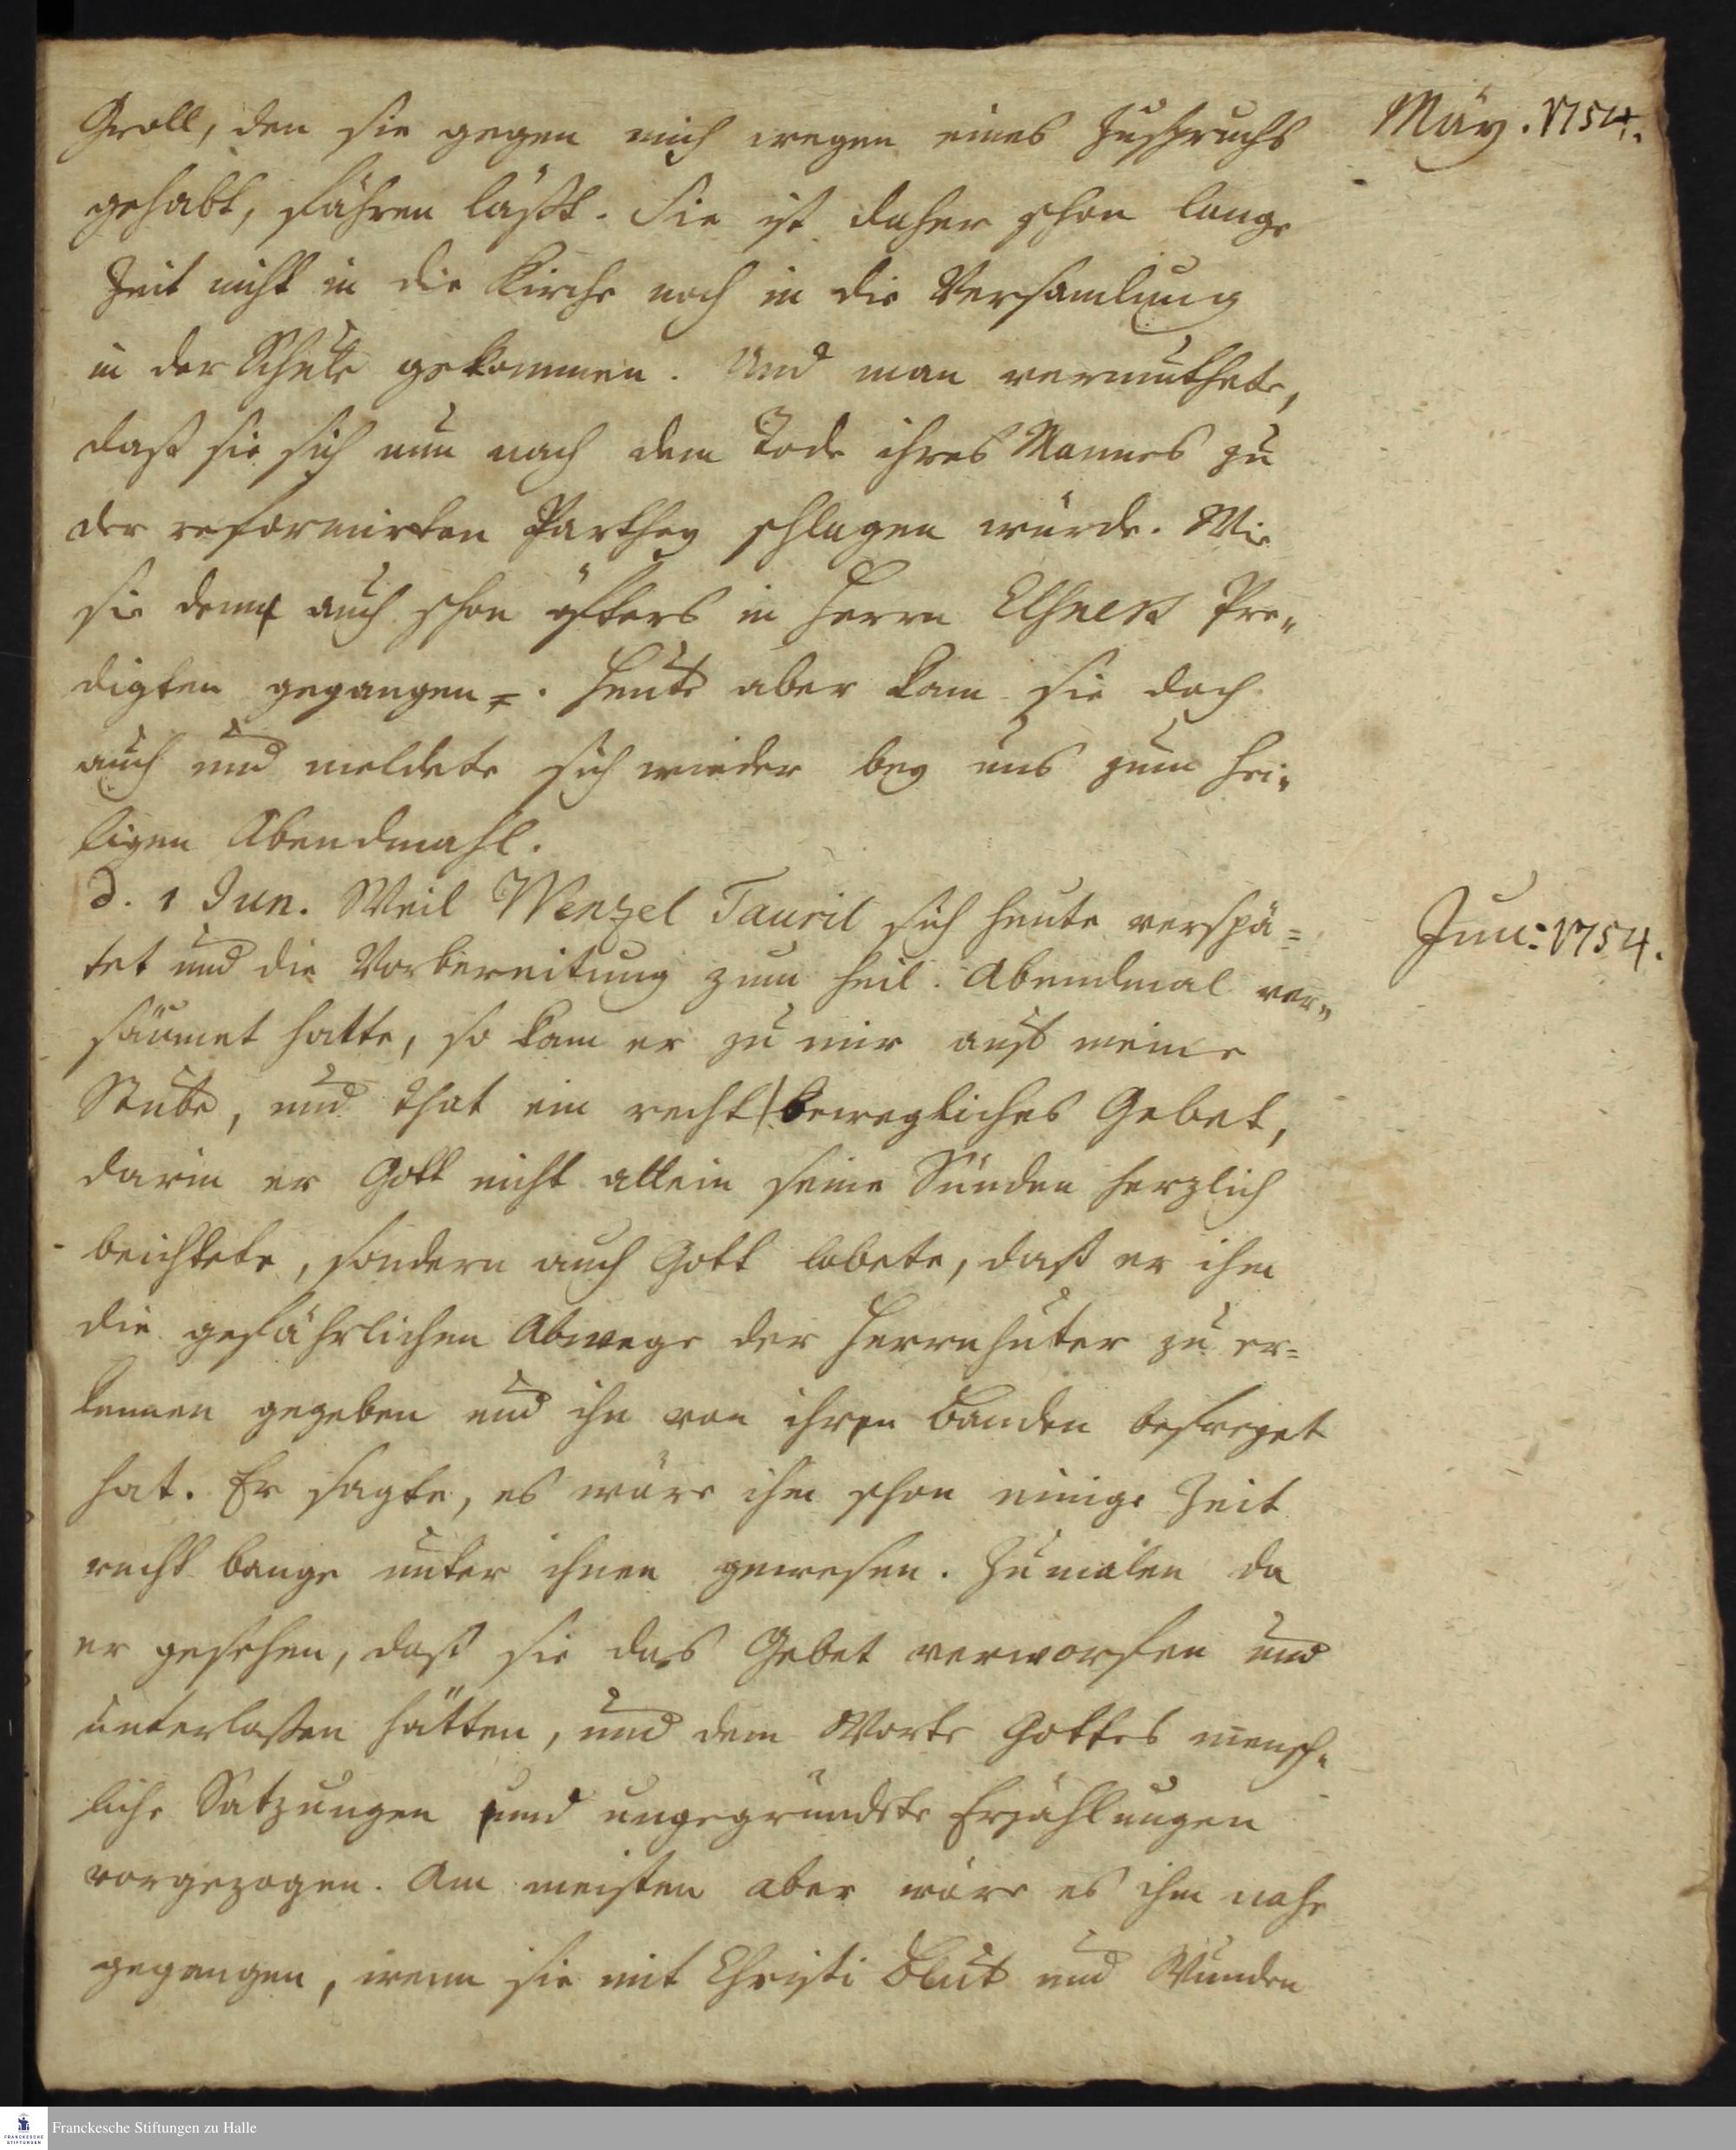 Groll, den sie gegen mich wegen eines Zuspruchs
May. 1754.
gehabt, fahren läßt. Sie ist daher schon lange
Zeit nicht in die Kirche noch in die Versamlung
in der Schule gekommen. Und man vermuthete,
daß sie sich nun nach dem Tode ihres Mannes zu
der reformirten Parthey schlagen würde. Wie
sie denn auch schon öfters in Herrn Elsners Pre„
digten gegangen. Heute aber kam sie doch
auch und meldete sich wieder bey uns zum hei„
ligen Abendmahl.
d. 1 Jun. Weil Wenzel Tauril sich heute verspä=
Jun: 1754.
tet und die Vorbereitung zum heil. Abendmal ver„
säumet hatte, so kam er zu mir auf meine
Stube, und that ein recht bewegliches Gebet,
darin er Gott nicht allein seine Sünden herzlich
beichtete, sondern auch Gott lobete, daß er ihm
die gefährlichen Abwege der Herrnhuter zu er=
kennen gegeben und ihn von ihren Banden befreyet
hat. Er sagte, es wäre ihm schon einige Zeit
recht bange unter ihnen gewesen. Zumalen da
er gesehen, daß sie das Gebet verworfen und
unterlaßen hätten, und dem Worte Gottes mensch„
liche Satzungen und ungegründete Erzählungen
vorgezogen. Am meisten aber wäre es ihm nahe
gegangen, wenn sie mit Christi Blut und Wunden
Franckesche Stiftungen zu Halle
FRANCKESCHE
STIFTUNGEN